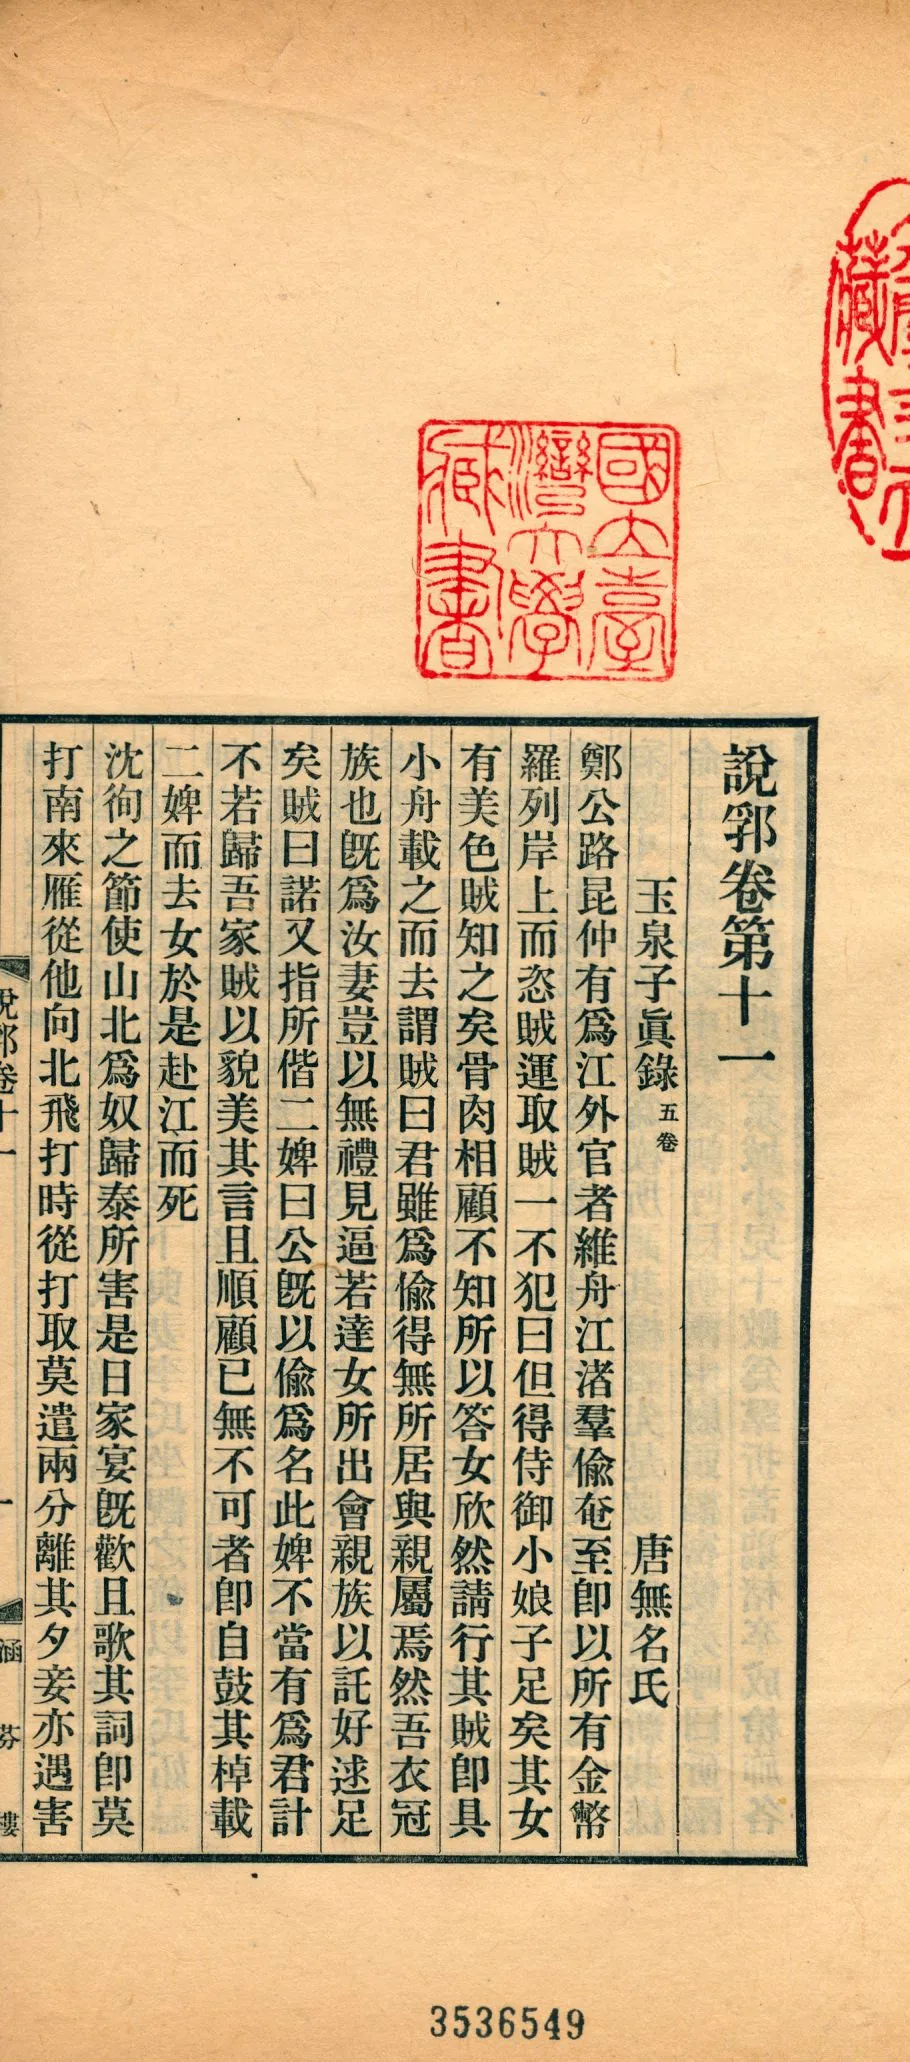 說郛卷第十一
玉泉子眞錄 五卷 唐無名氏
鄭公路昆仲有爲江外官者維舟江渚羣偸奄至卽以所有金幣
羅列岸上而恣賊運取賊一不犯曰但得侍御小娘子足矣其女
有美色賊知之矣骨肉相顧不知所以答女欣然請行其賊卽具
小舟載之而去謂賊曰君雖爲偸得無所居與親屬焉然吾衣冠
族也旣爲汝妻豈以無禮見逼若達女所出會親族以託好逑足
矣賊曰諾又指所偕二婢曰公旣以偸爲名此婢不當有爲君計
不若歸吾家賊以貌美其言且順顧已無不可者卽自鼓其棹載
二婢而去女於是赴江而死
沈徇之節使山北爲奴歸泰所害是日家宴旣歡且歌其詞卽莫
打南來雁從他向北飛打時從打取莫遣兩分離其夕妾亦遇害
說郛卷十一
一
涵芬樓
國立臺
灣大學
藏書
藏書
3536549